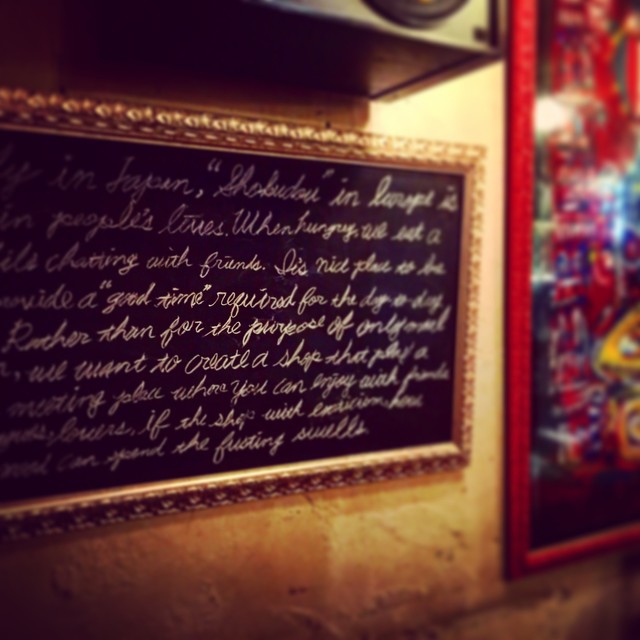 in Japan, "Shokudou" in Europe is
in people's lives. When hungry, we eat a
chatting with friends. It's nice place to be
a "good time" required for the day to day.
Rather than for the purpose of only meal
we want to create a shop that play a
meeting place where you can enjoy with friends
lovers. if the shop with
and can spend the